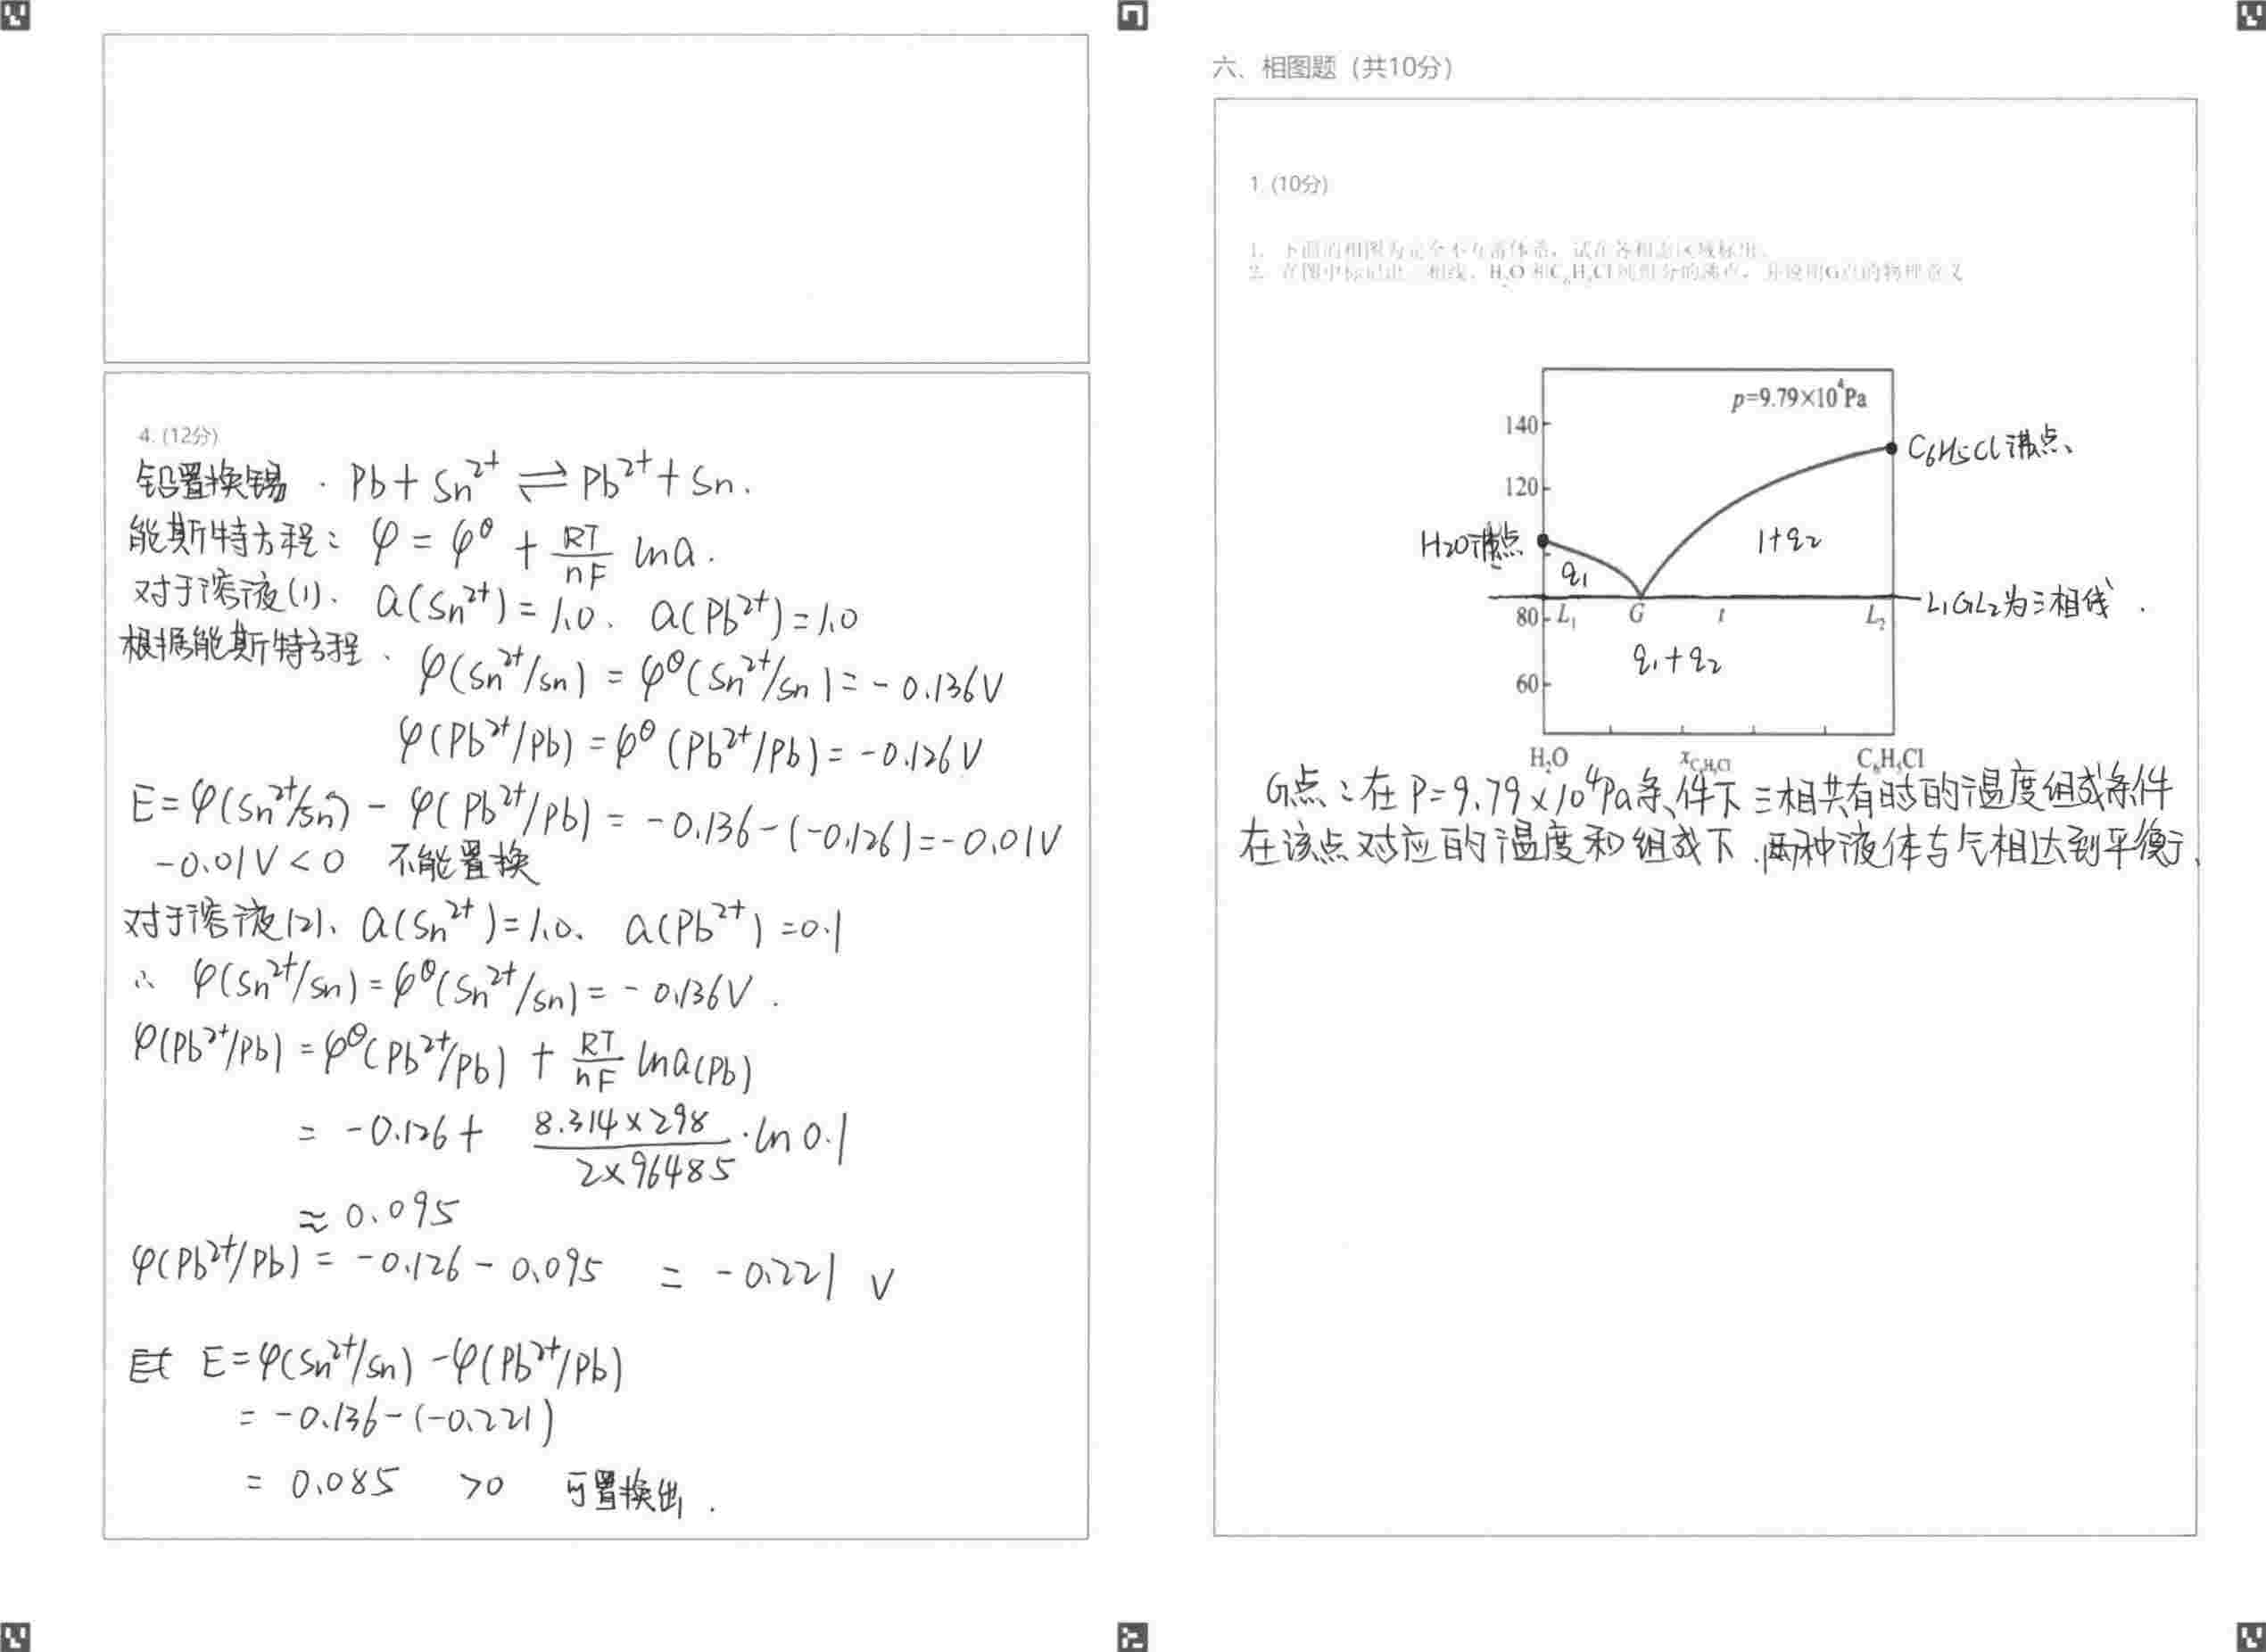 4. (12分)
铅置换锡. Pb + Sn²⁺ ⇌ Pb²⁺ + Sn.
能斯特方程: φ = φ^θ + RT/nF lna.
对于溶液(1)、 a(Sn²⁺) = 1.0. a(Pb²⁺) = 1.0
根据能斯特方程、 φ(Sn²⁺/Sn) = φ^θ(Sn²⁺/Sn) = -0.136V
φ(Pb²⁺/Pb) = φ^θ(Pb²⁺/Pb) = -0.126V
E = φ(Sn²⁺/Sn) - φ(Pb²⁺/Pb) = -0.136-(-0.126) = -0.01V
-0.01V < 0 不能置换
对于溶液(2)、 a(Sn²⁺) = 1.0、 a(Pb²⁺) = 0.1
∴ φ(Sn²⁺/Sn) = φ^θ(Sn²⁺/Sn) = -0.136V.
φ(Pb²⁺/Pb) = φ^θ(Pb²⁺/Pb) + RT/nF lna(Pb)
= -0.126 + 8.314×298/2×96485 · ln0.1
≈ 0.095
φ(Pb²⁺/Pb) = -0.126 - 0.095 = -0.221 V
E = φ(Sn²⁺/Sn) - φ(Pb²⁺/Pb)
= -0.136-(-0.221)
= 0.085 >0 可置换出.
六、相图题 (共10分)
1. (10分)
1. 下面的相图为完全不互溶体系，试在各相态区域标出、
2. 在图中标记出三相线、H₂O 和C₆H₅Cl 纯组分的沸点，并说明G点的物理意义
p=9.79×10⁴Pa
140
C6H5Cl沸点、
120
H2O沸点
l+q2
q1
80 L₁ G t L₂
L1GL2为三相线.
q1+q2
60
H₂O x_C₆H₅Cl C₆H₅Cl
G点: 在P=9.79×10⁴Pa条件下三相共有时的温度组成条件
在该点对应的温度和组成下.两种液体与气相达到平衡、